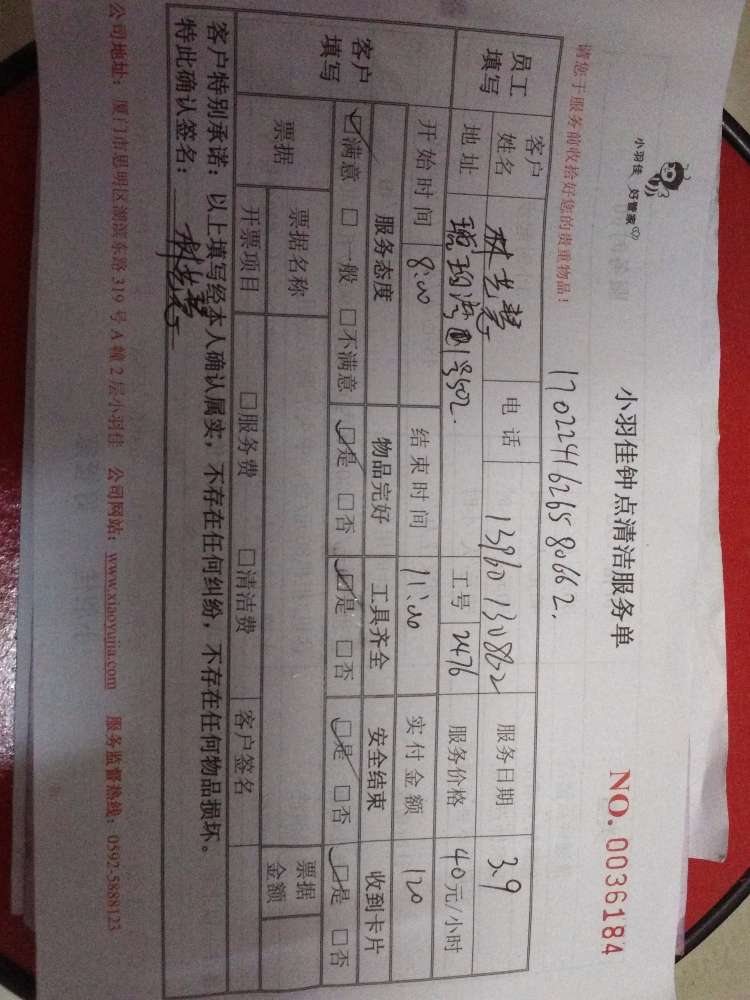 小羽佳 好管家
小羽佳钟点清洁服务单
NO. 0036184
请您于服务前收拾好您的贵重物品!
1702241626580662.
员工填写 客户姓名 林艺慧 电话 13960130862 服务日期 3.9
地址 1号502. 工号 2476 服务价格 40元/小时
客户填写 开始时间 8:00 结束时间 11:00 实付金额 120
服务态度 物品完好 工具齐全 安全结束 收到卡片
☑满意 □一般 □不满意 ☑是 □否 ☑是 □否 ☑是 □否 ☑是 □否
票据 票据名称 票据金额
开票项目 □服务费 □清洁费 客户签名
客户特别承诺:以上填写经本人确认属实,不存在任何纠纷,不存在任何物品损坏。
特此确认签名:林艺慧
公司地址:厦门市思明区湖滨东路319号A幢2层小羽佳 公司网站:www.xiaoyujia.com 服务监督热线:0592-5888123